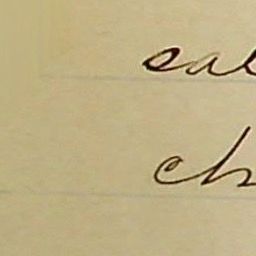 sal
ch